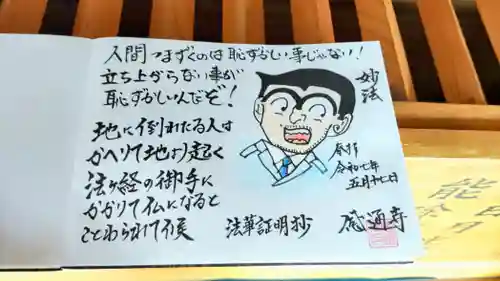 人間つまずくのは恥ずかしい事じゃない!
立ち上がらない事が
恥ずかしいんだぞ!
地に倒れたる人は
かへりて地より起く
法ヶ経の御手に
かかりて仏になると
ことわられて候
法華証明抄
妙法
奉拝
令和七年
五月十七日